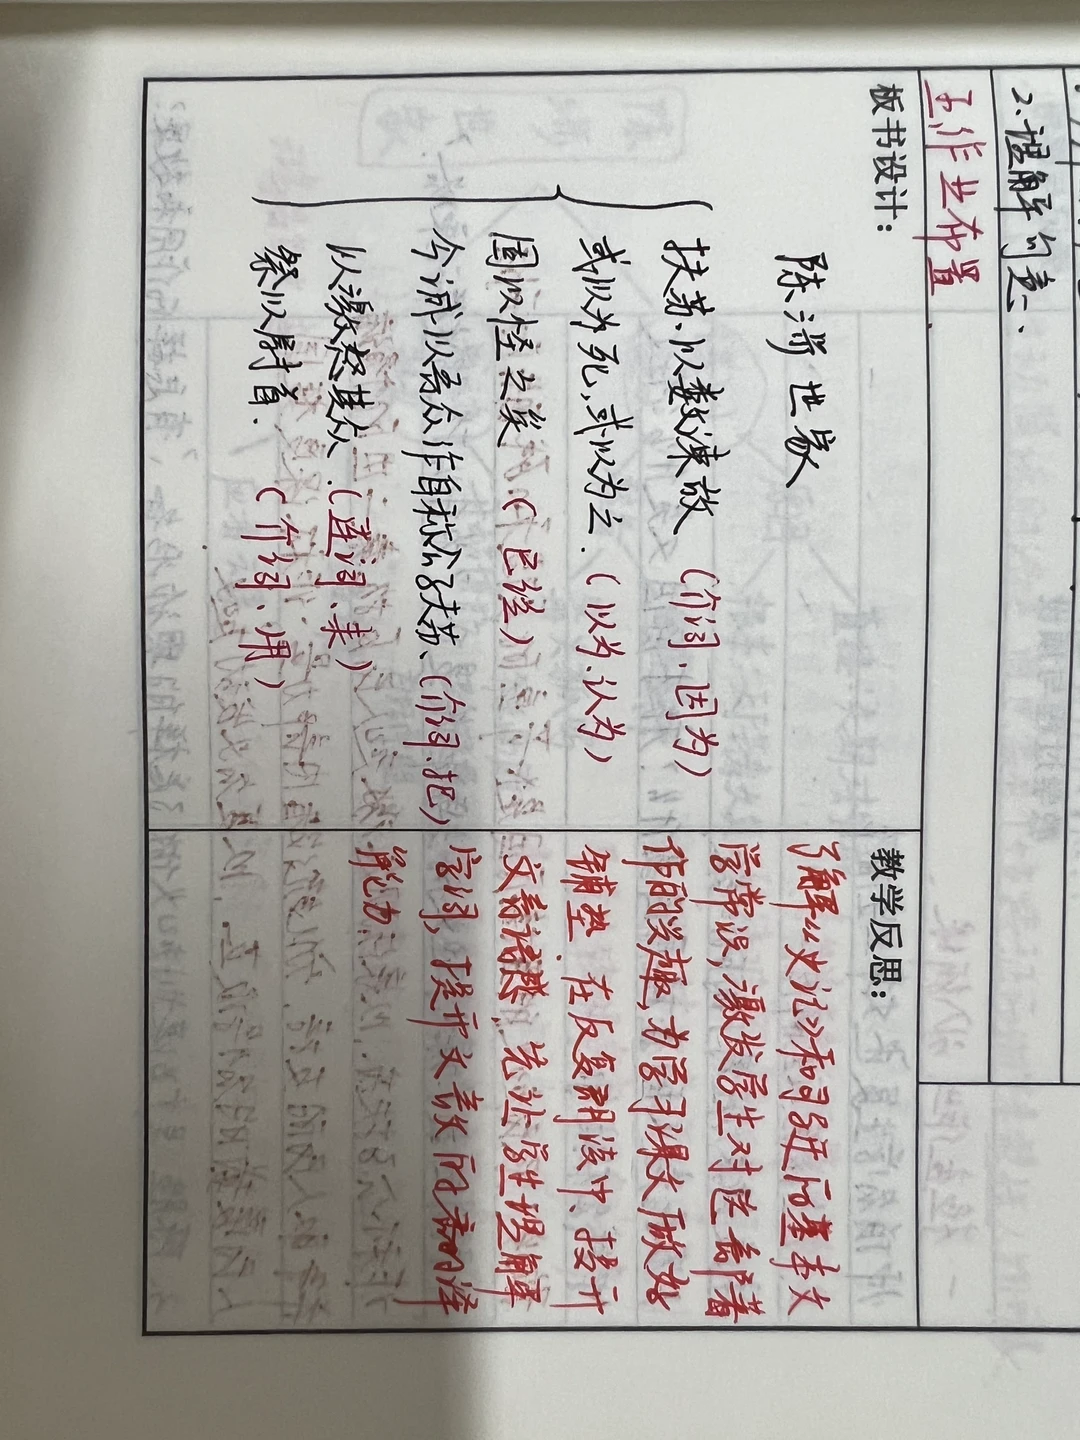 2、理解句意、
五、作业布置
板书设计：
陈涉世家
扶苏以数谏故 （介词.因为）
或以为死，或以为亡.（以为.认为）
固以怪之矣 （已经）
今诚以吾众诈自称公子扶苏、（介词.把）
以激怒其众.（连词.来）
祭以尉首.（介词.用）
教学反思：
了解《史记》和司马迁的基本文
学常识，激发学生对这部著
作的兴趣，为学习课文做好
铺垫.在反复朗读中、提升
文言语感，先让学生理解
字词，提升文言文的翻译
能力